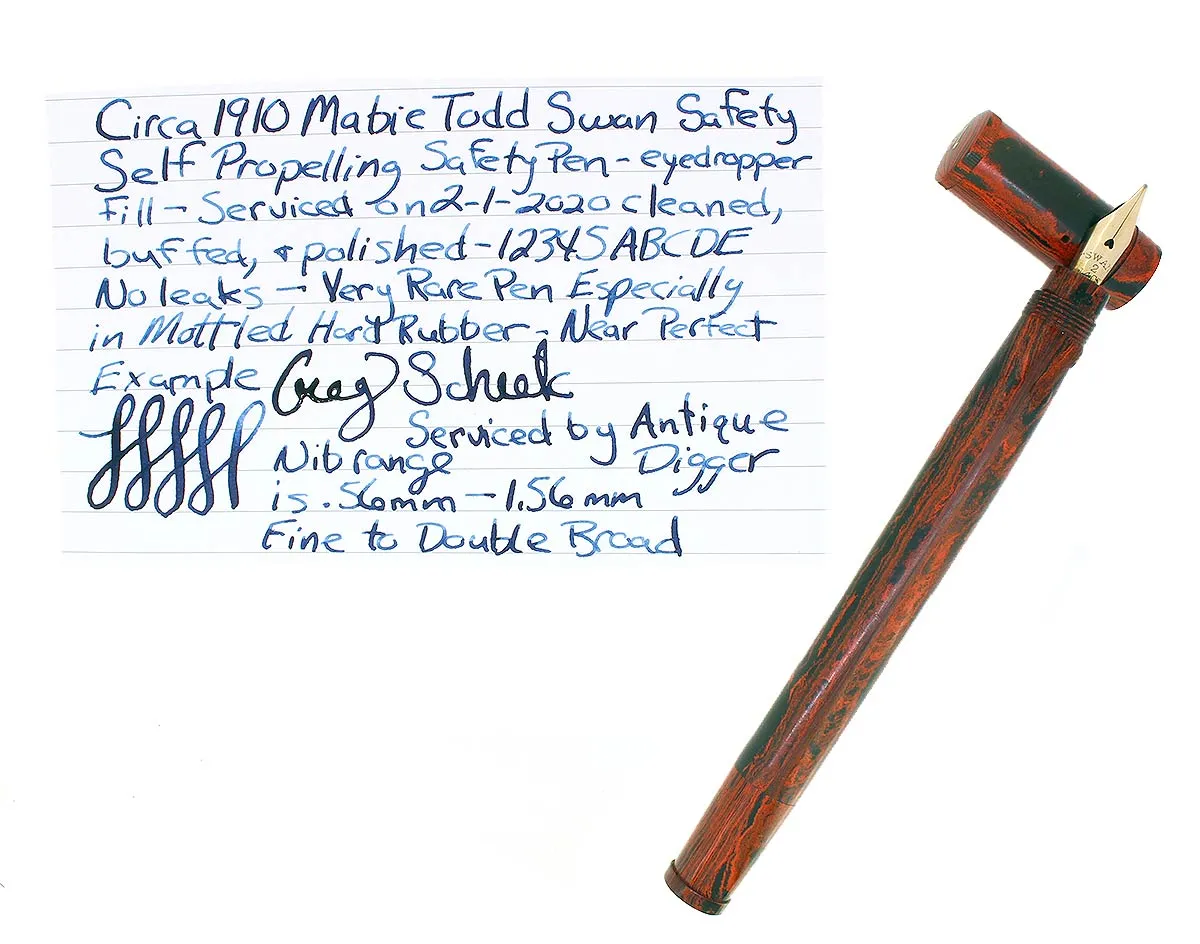 Circa 1910 Mabie Todd Swan Safety
Self Propelling Safety Pen - eyedropper
Fill - Serviced on 2-1-2020 cleaned,
buffed, & polished - 12345 ABCDE
No leaks - Very Rare Pen Especially
in Mottled Hard Rubber - Near Perfect
Example Greg Scheek
Serviced by Antique
Nib range Digger
is .56mm - 1.56mm
Fine to Double Broad
SWAN
2